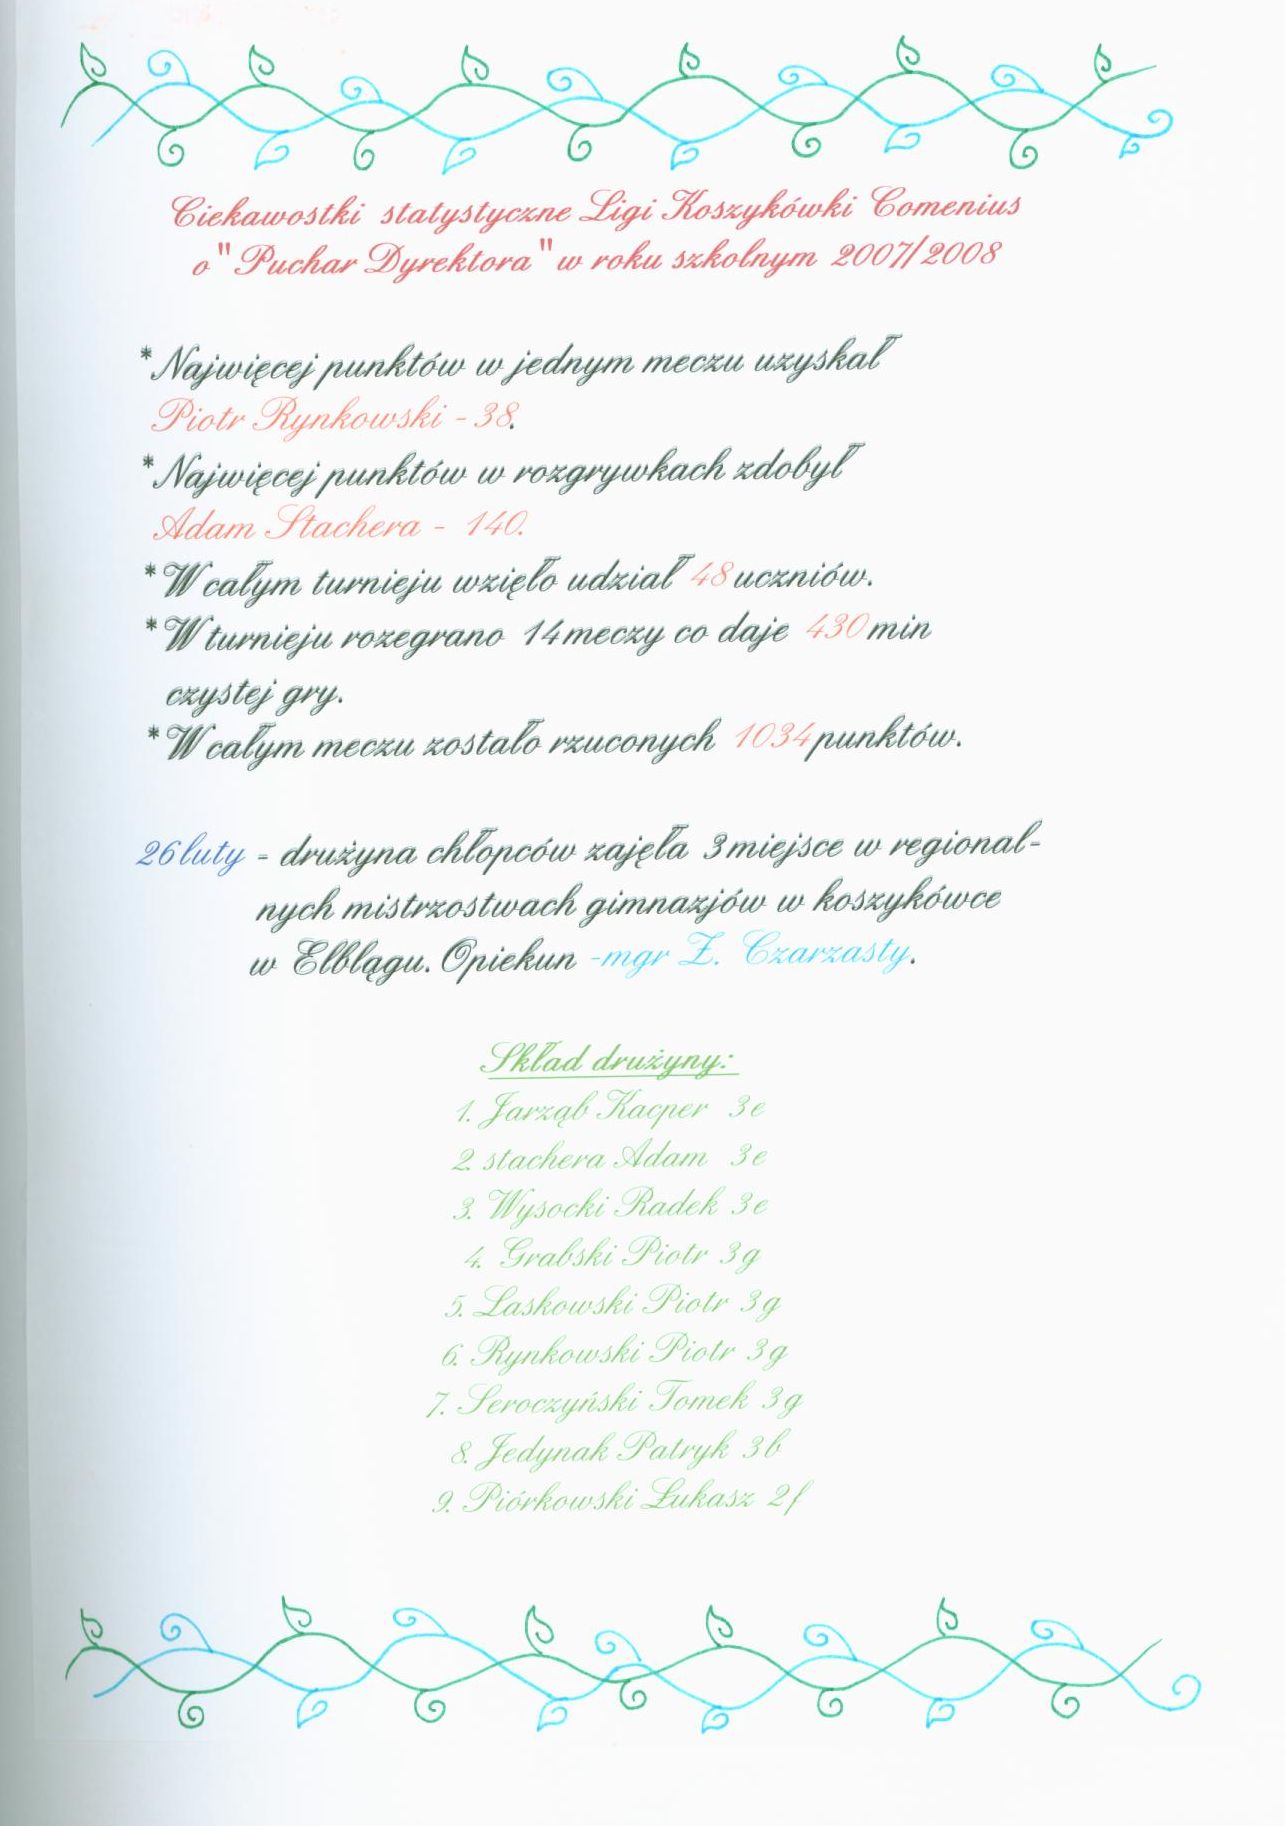 Ciekawostki statystyczne Ligi Koszykówki Comenius
o "Puchar Dyrektora" w roku szkolnym 2007/2008
* Najwięcej punktów w jednym meczu uzyskał
Piotr Rynkowski - 38.
* Najwięcej punktów w rozgrywkach zdobył
Adam Stachera - 140.
* W całym turnieju wzięło udział 48 uczniów.
* W turnieju rozegrano 14 meczy co daje 430 min
czystej gry.
* W całym meczu zostało rzuconych 1034 punktów.
26 luty - drużyna chłopców zajęła 3 miejsce w regional-
nych mistrzostwach gimnazjów w koszykówce
w Elblągu. Opiekun - mgr Z. Czarzasty.
Skład drużyny:
1. Jarząb Kacper 3e
2. stachera Adam 3e
3. Wysocki Radek 3e
4. Grabski Piotr 3g
5. Laskowski Piotr 3g
6. Rynkowski Piotr 3g
7. Seroczyński Tomek 3g
8. Jedynak Patryk 3b
9. Piórkowski Łukasz 2f